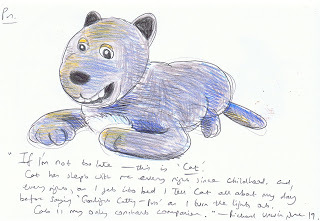 "If I'm not too late — this is 'Cat'.
Cat has slept with me every night since childhood. And
every night, as I get into bed I tell Cat all about my day
before saying "Goodnight Catty-" as I turn the lights out.
Cat is my only constant companion." — Richard